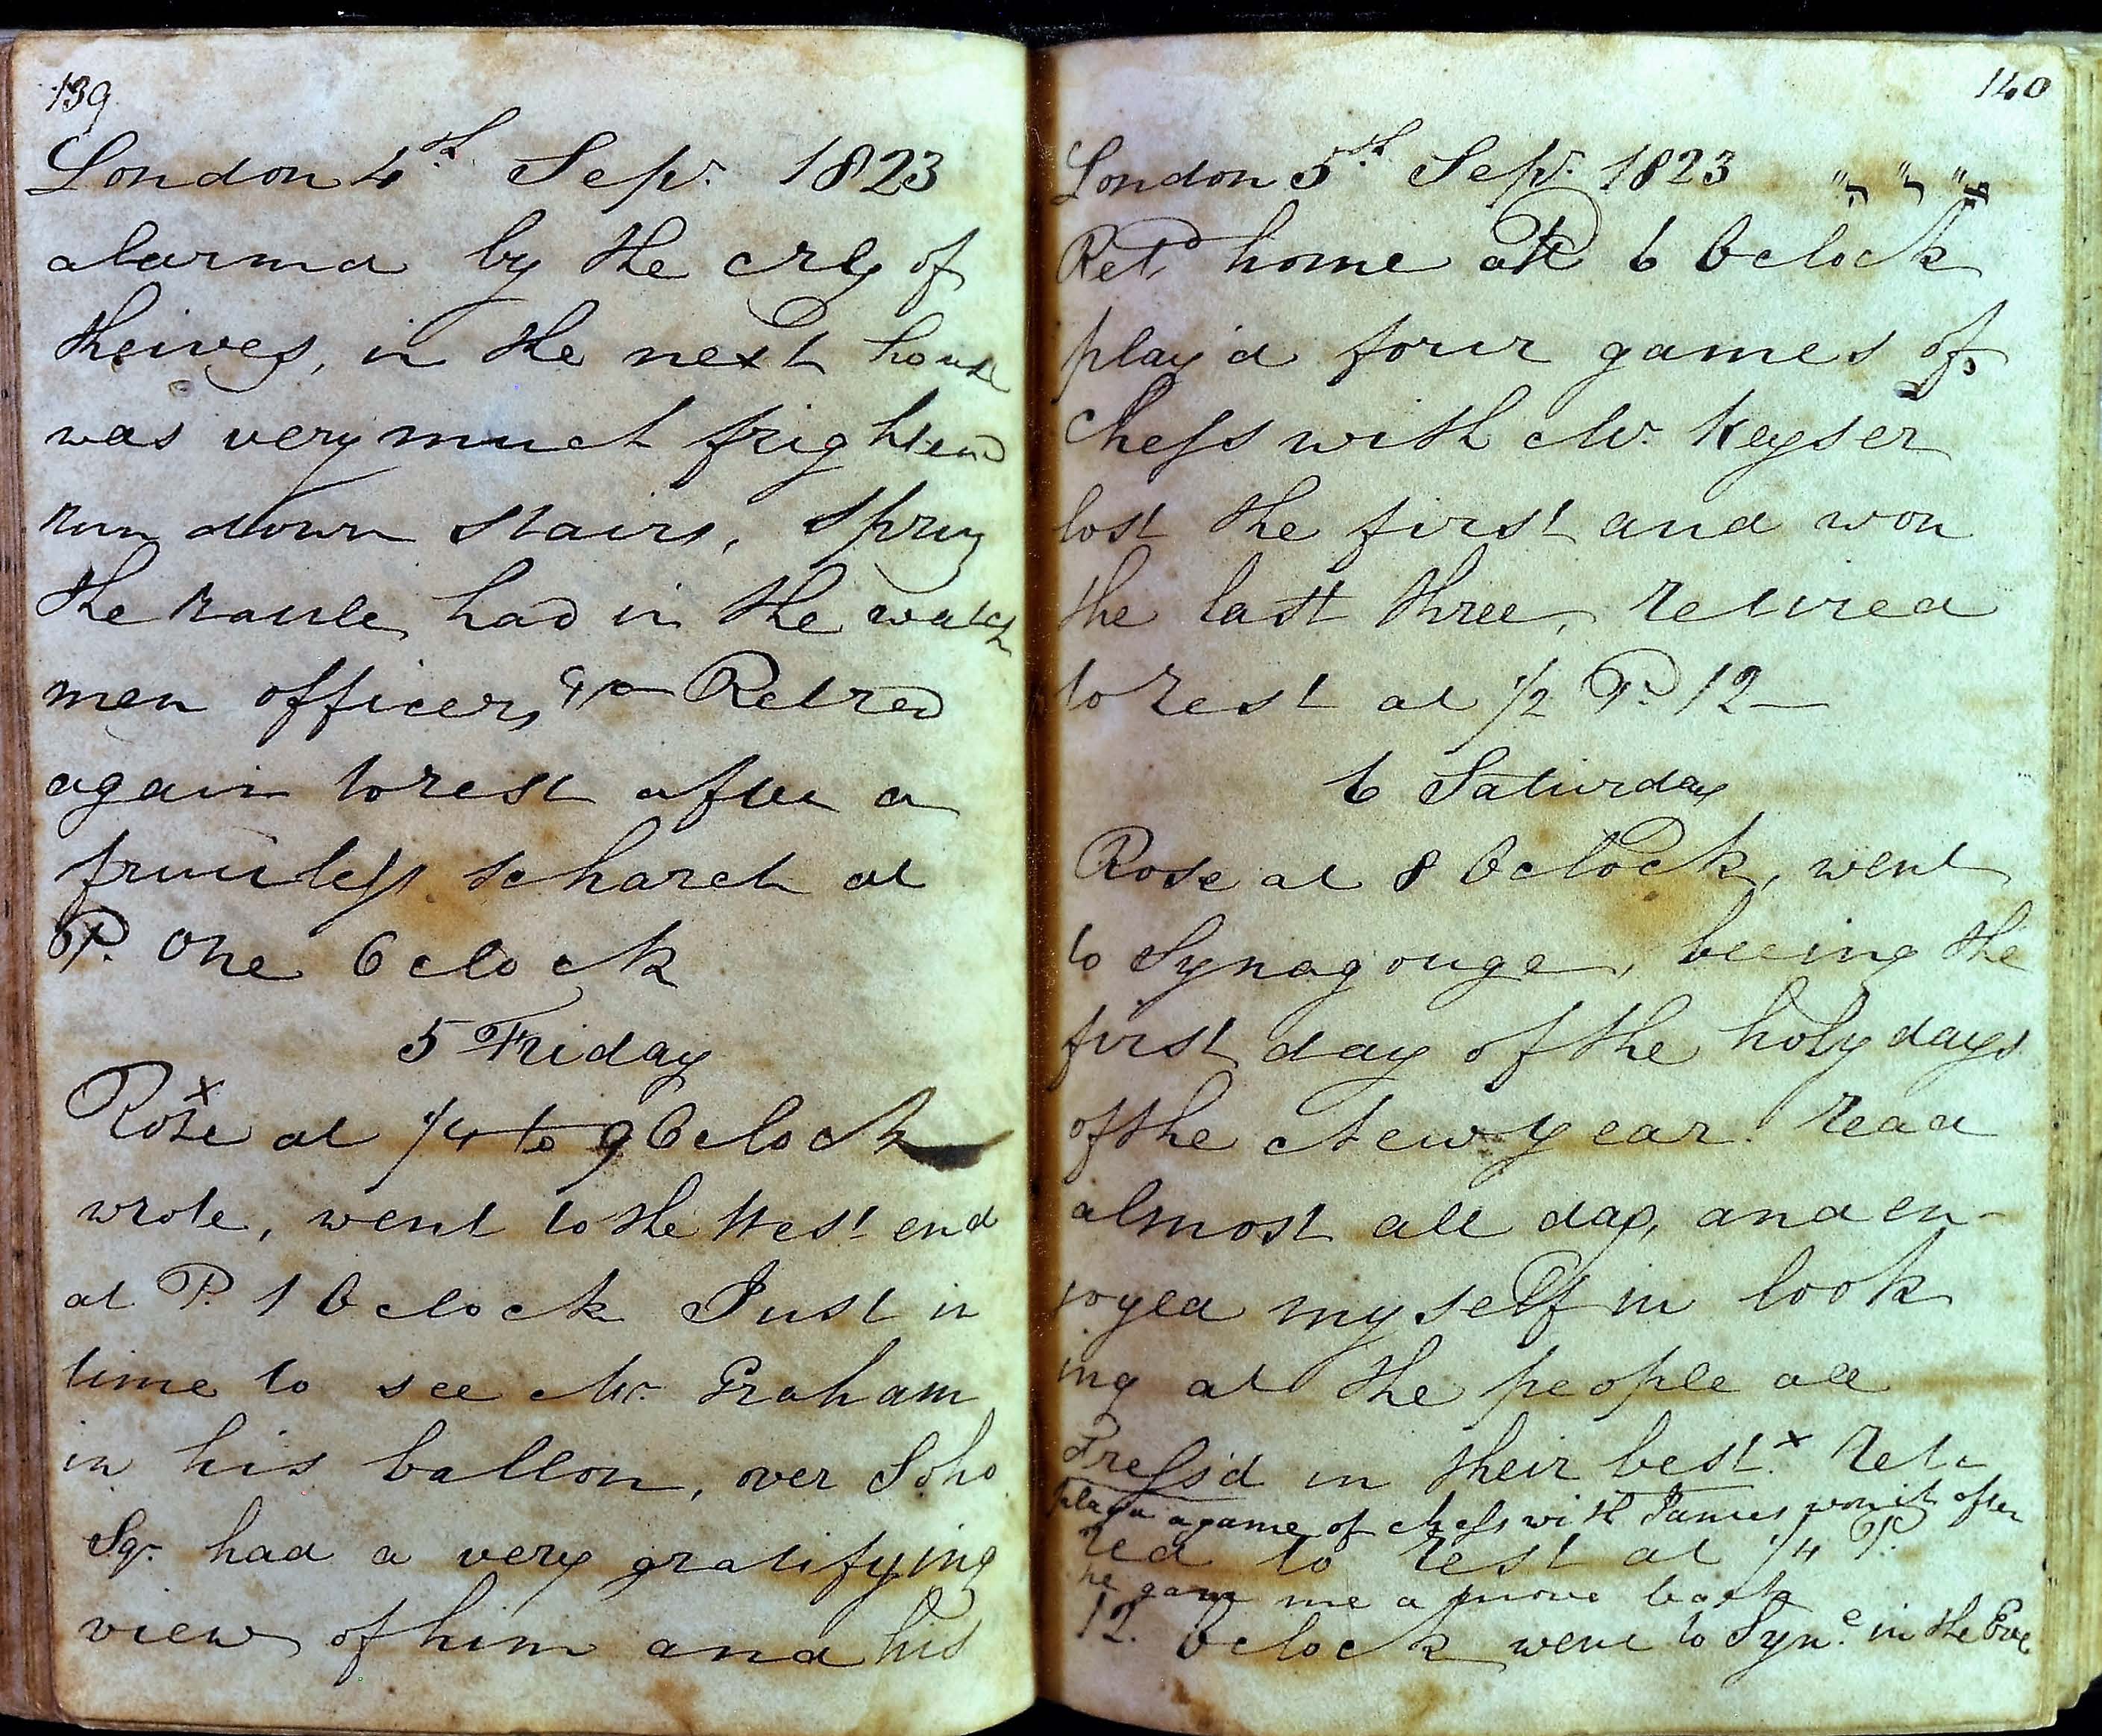 139
London 4th Sepr. 1823
alarmd by the cry of
theives, in the next house
was very much frightend
run down stairs, sprung
the rattle, had in the watch
men officers, &c Retired
again to rest after a
fruitless scharch at
P. One Oclock
5 Friday
Rose at 1/4 to 9 Oclock
wrote, went to the West end
at P. 1 Oclock Just in
time to see Mr. Graham
in his ballon, over Soho
Sqr. had a very gratifying
view of him and his
140
London 5th Sepr. 1823 " " "
Retd home at 6 Oclock
play'd four games of
Chess with Mr. Keyser
lost the first and won
the last three, retired
to rest at 1/2 P. 12
6 Saturday
Rose at 8 Oclock, went
to Synagouge, beeing the
first day of the holy days
of the New year. read
almost all day, and en-
joyed myself in look
ing at the people all
Dress'd in their best. x reti
playd a game of chess with James won it after
red to rest at 1/4 P.
he gave me a move back
12. Oclock went to Syne. in the Eve